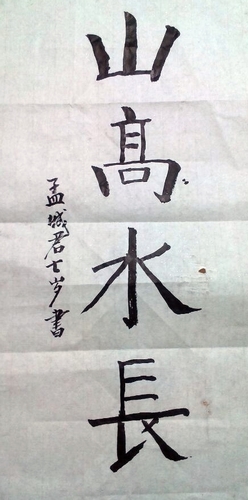 山髙水長
孟城君七岁書